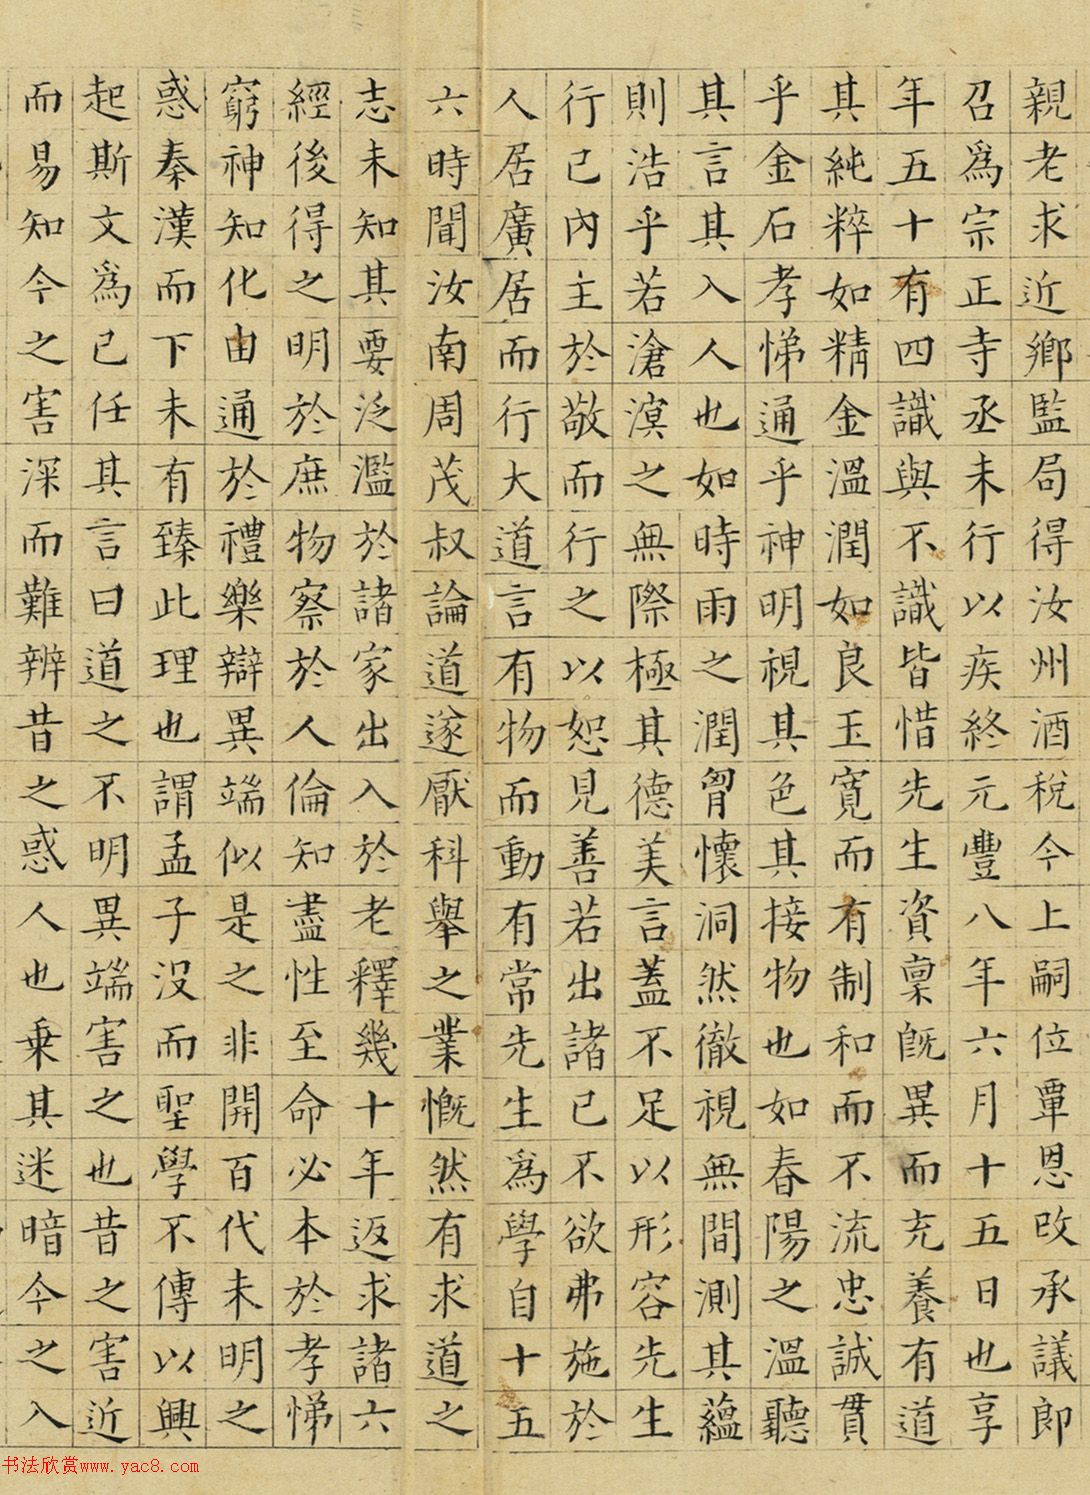 親老求近鄉監局得汝州酒稅今上嗣位覃恩改承議郎
召爲宗正寺丞未行以疾終元豐八年六月十五日也享
年五十有四識與不識皆惜先生資稟既異而充養有道
其純粹如精金溫潤如良玉寬而有制和而不流忠誠貫
乎金石孝悌通乎神明視其色其接物也如春陽之溫聽
其言其入人也如時雨之潤胷懷洞然徹視無間測其蘊
則浩乎若滄溟之無際極其德美言蓋不足以形容先生
行己內主於敬而行之以恕見善若出諸己不欲弗施於
人居廣居而行大道言有物而動有常先生爲學自十五
六時聞汝南周茂叔論道遂厭科舉之業慨然有求道之
志未知其要泛濫於諸家出入於老釋幾十年返求諸六
經後得之明於庶物察於人倫知盡性至命必本於孝悌
窮神知化由通於禮樂辯異端似是之非開百代未明之
惑秦漢而下未有臻此理也謂孟子沒而聖學不傳以興
起斯文爲己任其言曰道之不明異端害之也昔之害近
而易知今之害深而難辨昔之惑人也乘其迷暗今之入
书法欣赏www.yac8.com